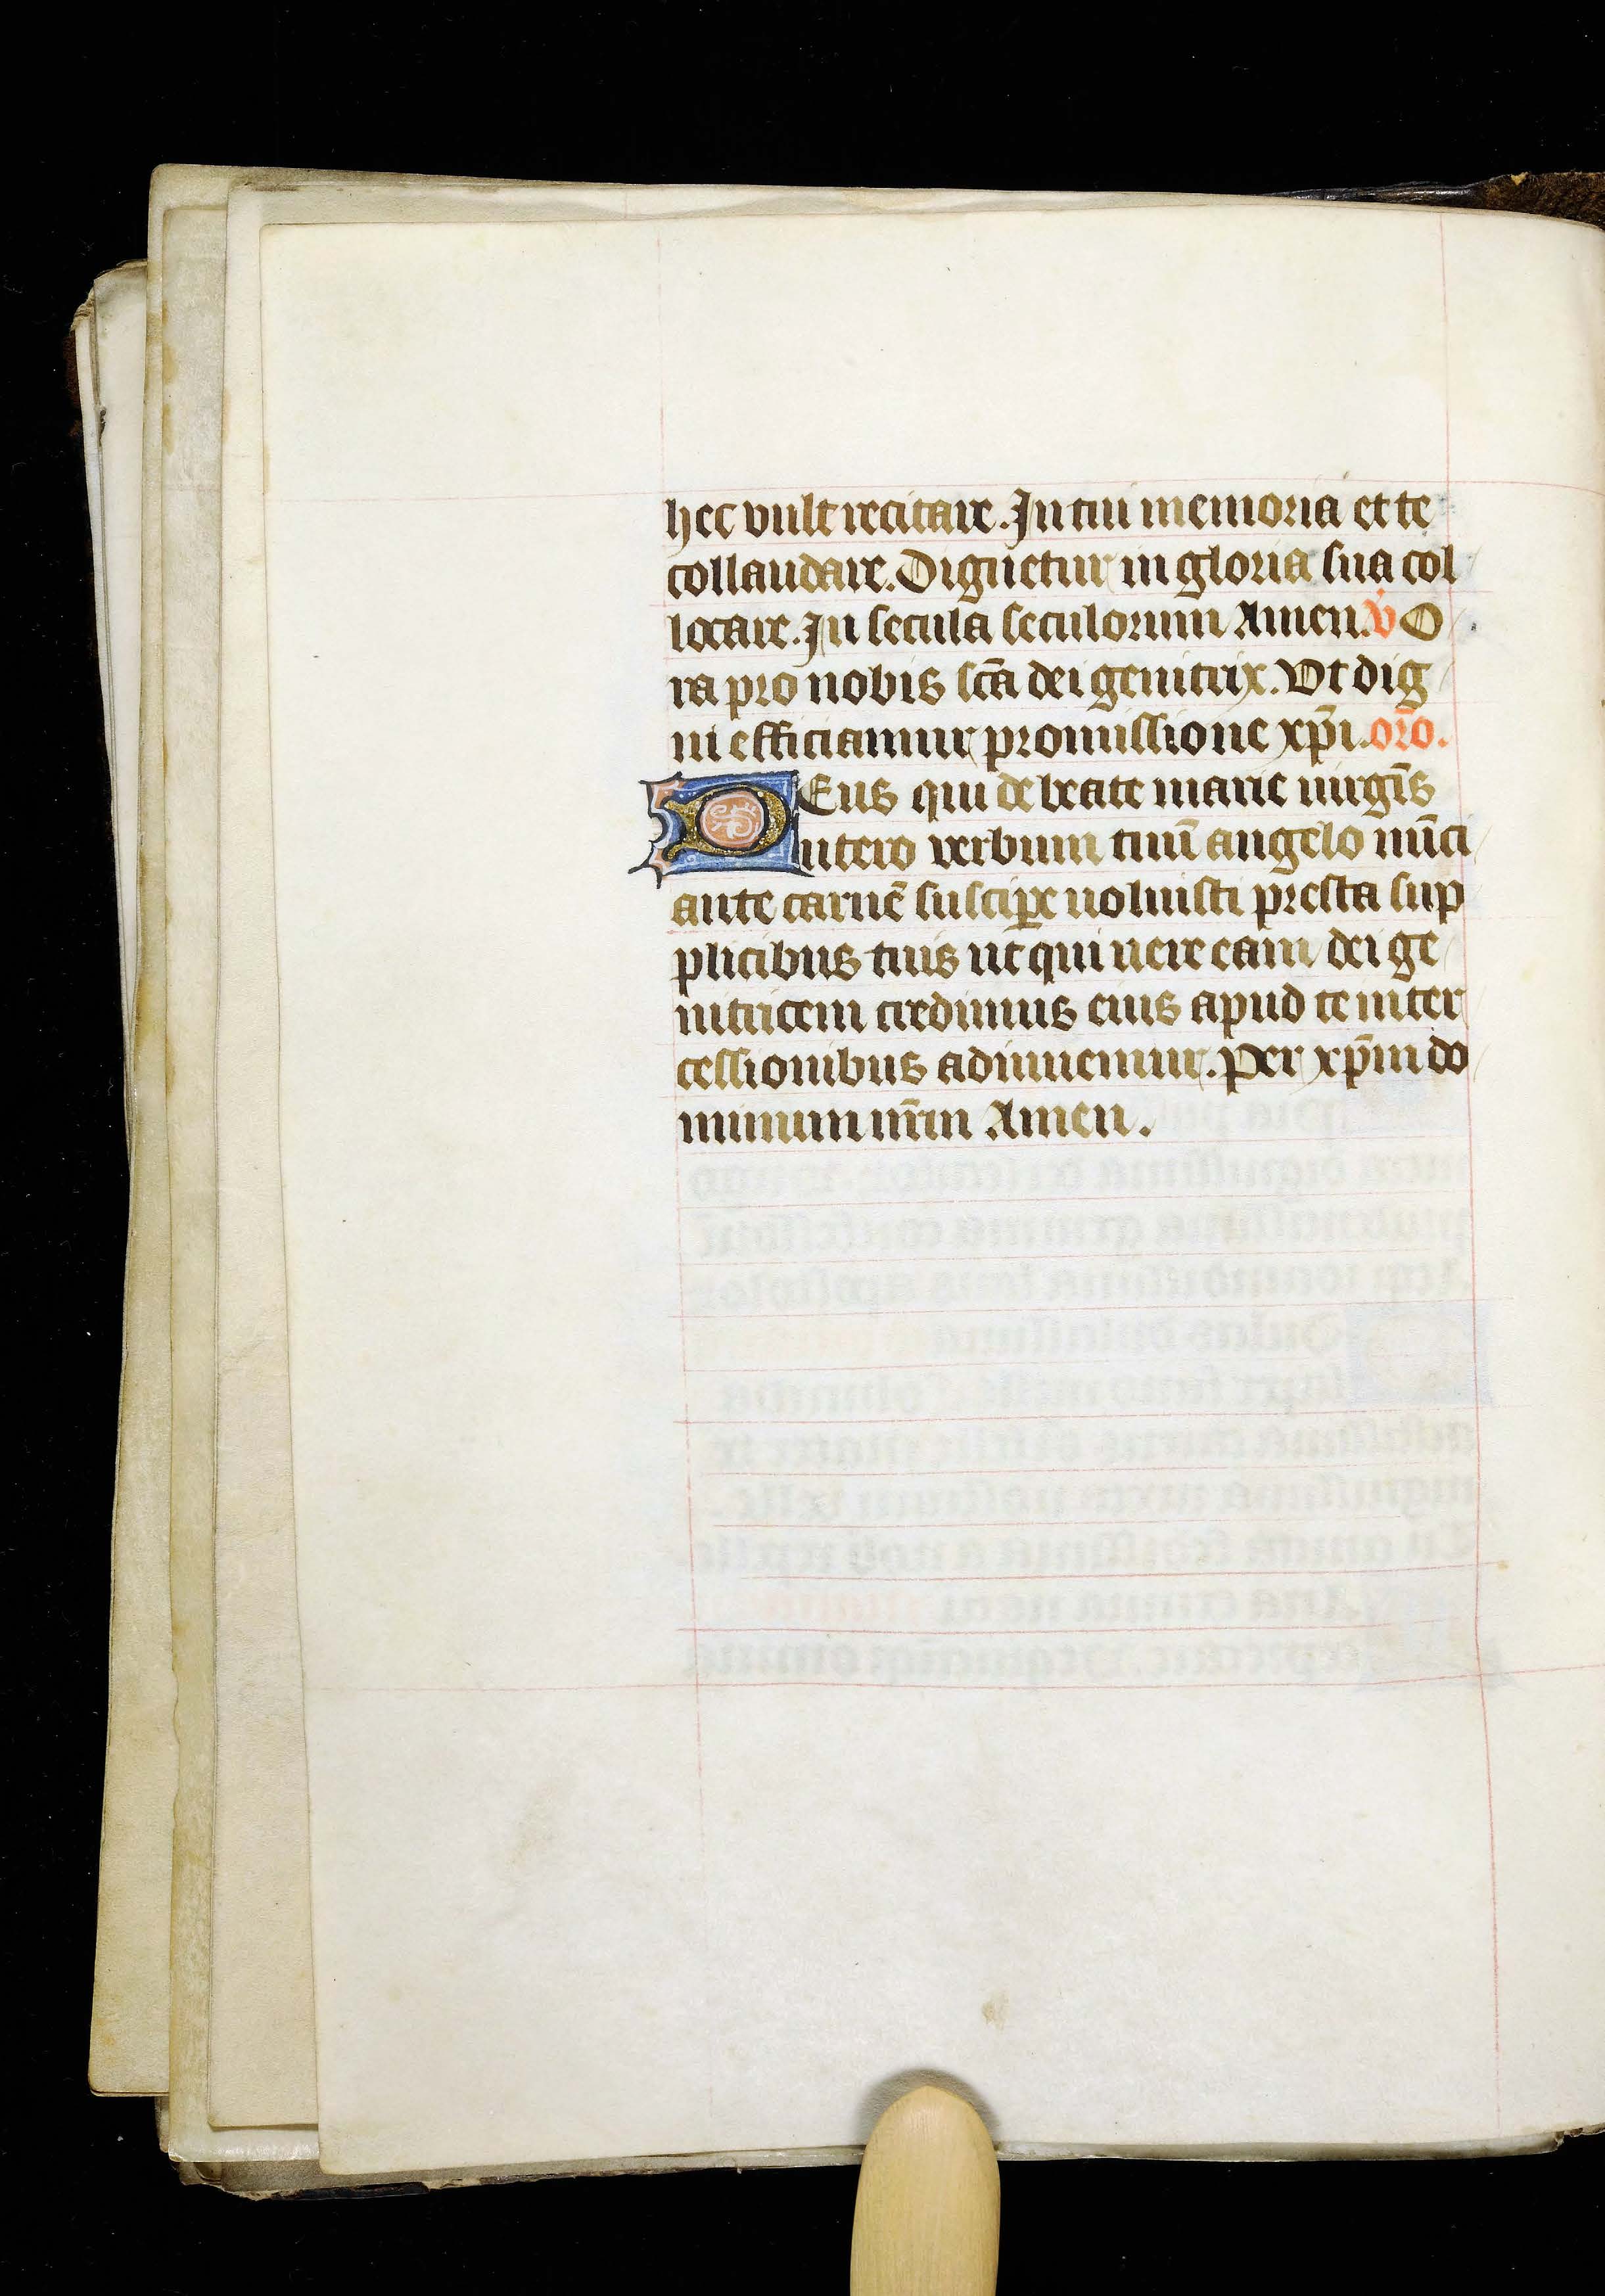 hec vult recitare. In tui memoriā et te
collaudare. Dignetur in gloria sua col
locare. In secula seculorum Amen. v̇ O
ra pro nobis sc̄a dei genitrix. Vt dig
ni efficiamur promissione xp̄i. or̄o.
DEus qui de beate marie uirgīs
utero verbum tuū angelo nūci
ante carnē suscip̄e uoluisti presta sup
plicibus tuis ut qui uere eam dei ge
nitricem credimus eius apud te inter
cessionibus adiuuemur. Per xp̄m do
minum nr̄m Amen.